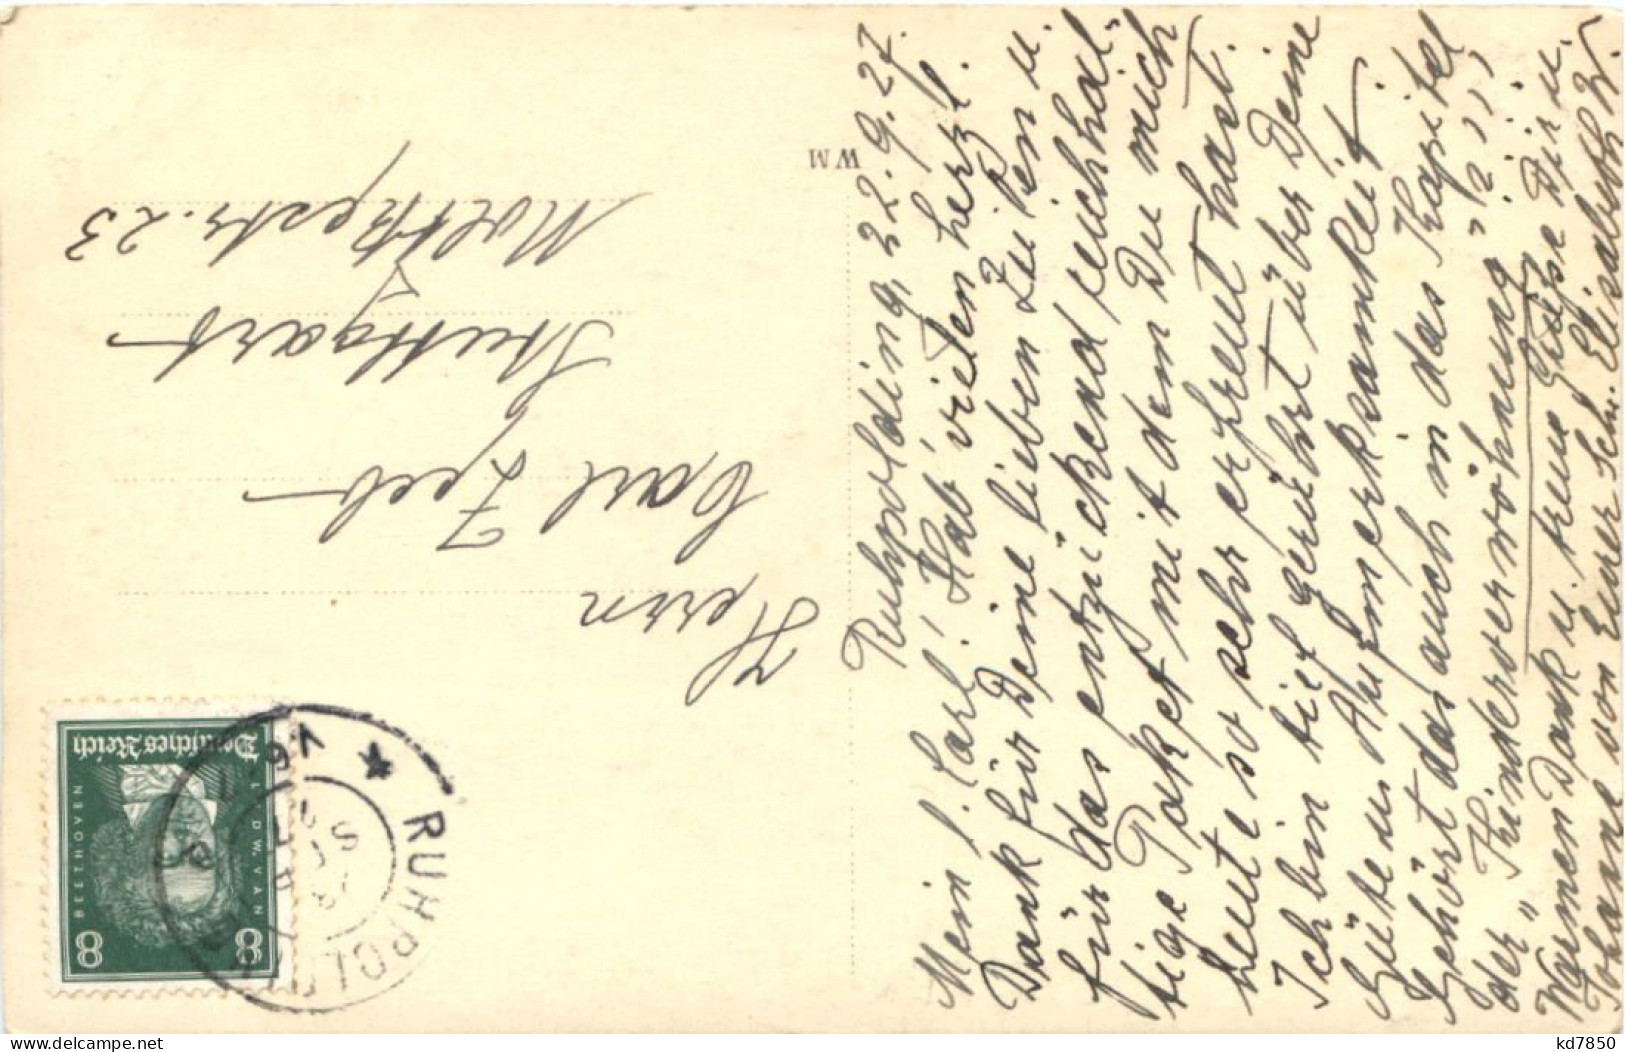 Ruhpolding, 22.9.27.
Mein l. Carl! Hab' vielen herzl.
Dank für Deine lieben Zeilen u.
für das entzückend reichhal-
tige Paket mit dem Du mich
heute so sehr erfreut hast.
Ich bin tief gerührt über Deine
Güte u. Aufmerksamkeit.
Gehört das auch in das Kapitel
der "Kinderverwöhnung"
Warmen Dank u. treue Grüße Dir u.
Johane von Eurer Schw. Elisabeth W.
Herrn
Carl Zeeb
Stuttgart
Moltkestr. 23
WM
Deutsches Reich
L. D W. VAN
BEETHOVEN
8 8
RUHPOLDING
delcampe.net
kd7850